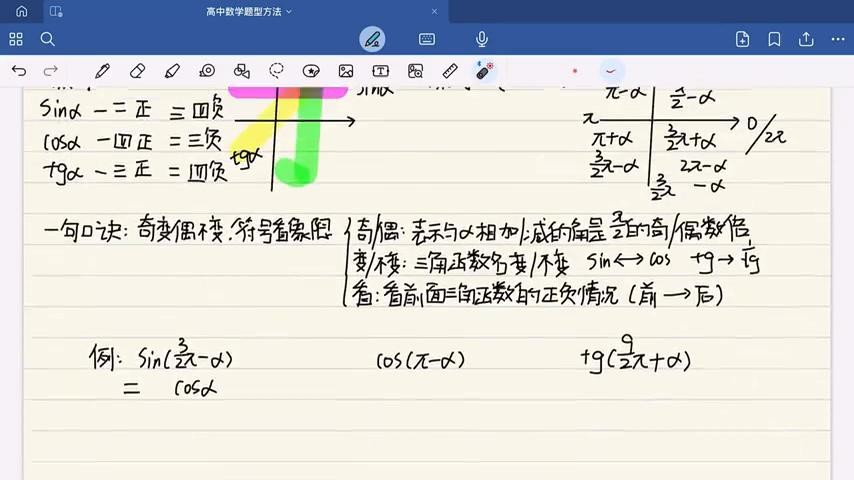 高中数学题型方法
sinα
π-α π/2-α
sinα 一二正 三四负
cosα 一四正 二三负
tgα 一三正 二四负
tgα
π 0/2π
π+α 3/2π+α
3/2π-α 2π-α
3/2π -α
一句口诀: 奇变偶不变, 符号看象限
奇/偶: 表示与α相加/减的角是π/2的奇/偶数倍
变/不变: 三角函数名变/不变 sin↔cos tg→1/tg
看: 看前面三角函数的正负情况 (前→后)
例: sin(3/2π-α) cos(π-α) tg(9/2π+α)
= cosα